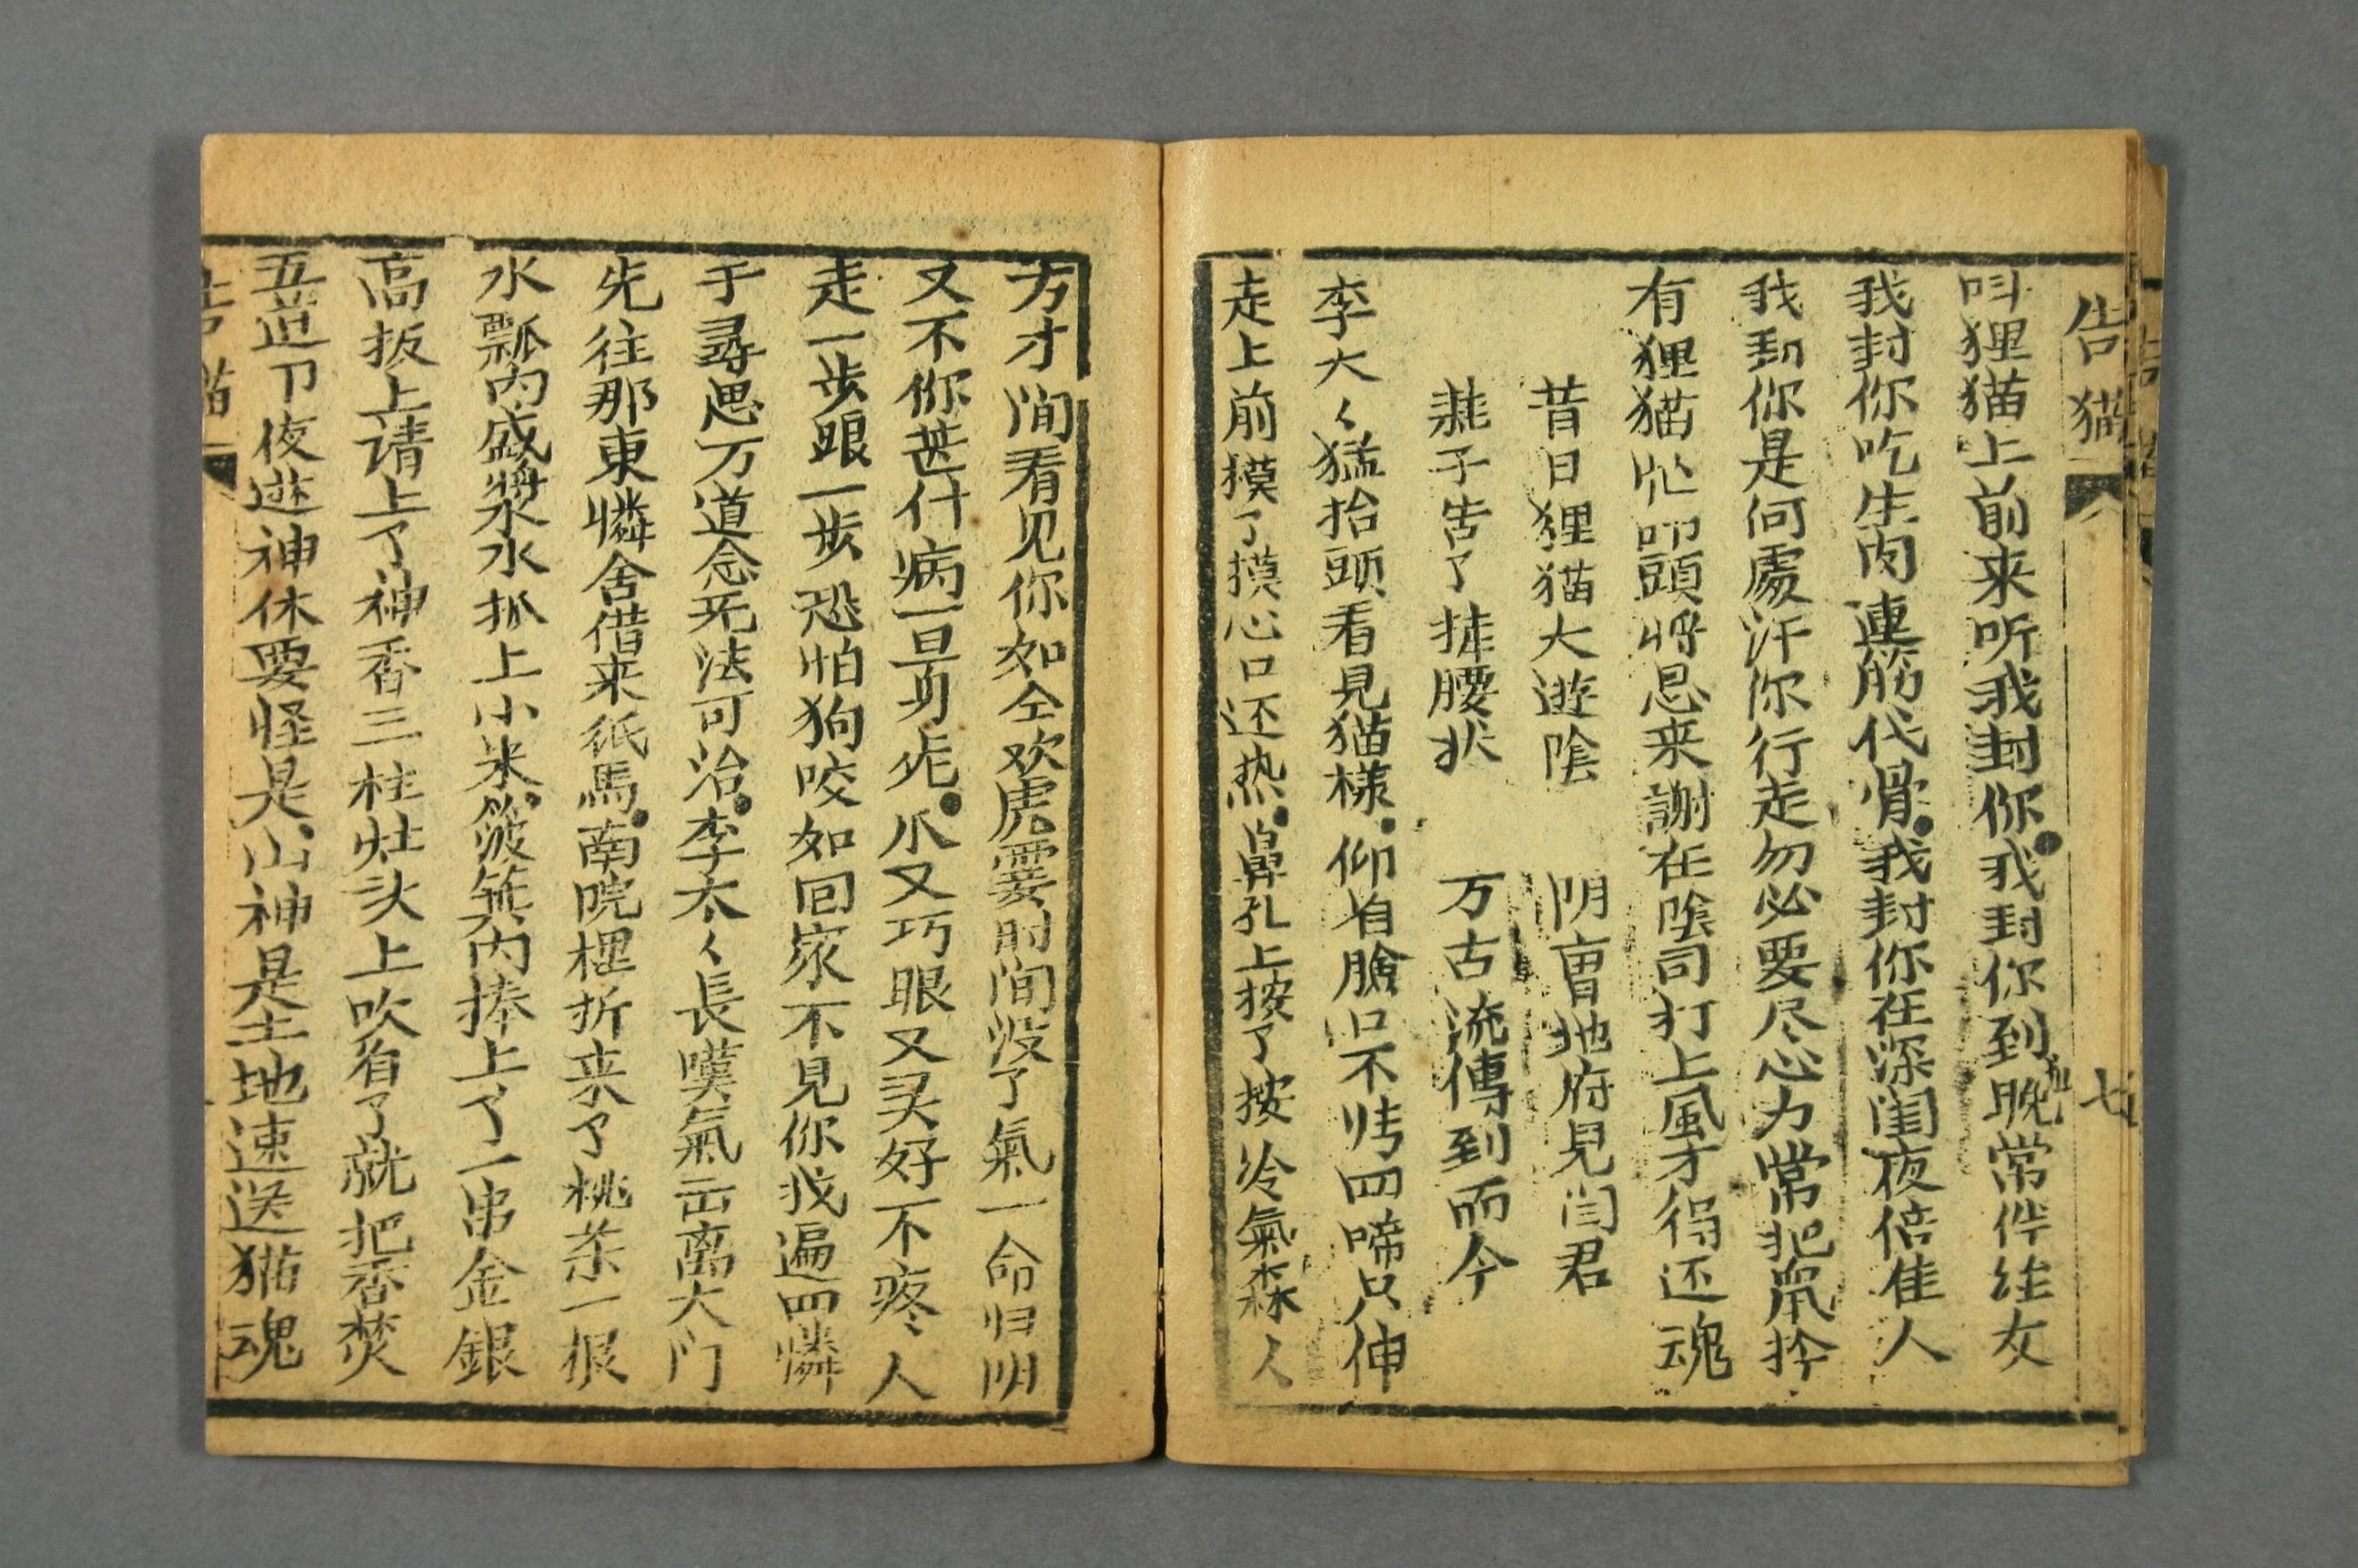 告猫 七
叫狸猫上前来听我封你我封你到晚常伴绣女
我封你吃生肉連筋代骨我封你在深闺夜倍佳人
我封你是何處汗你行走勿必要尽心力常把鼠拎
有狸猫忙叩頭将恩来謝在陰司打上風才得还魂
昔日狸猫大遊陰 阴曹地府見闫君
耗子告了挂腰状 万古流傳到而今
李大〻猛抬頭看見猫樣仰着臉口不情四啼只伸
走上前摸了摸心口还热鼻孔上按了按冷氣森人
方才间看见你如仝欢虎霎时间没了氣一命归阴
又不你甚什病一
爪又巧眼又灵好不疼人
走一步跟一步恐怕狗咬如回家不見你找遍四憐
于尋思万道念无法可治李太〻長嘆氣出离大门
先往那東憐舍借来纸馬南院裡折来了桃条一根
水瓢内盛漿水抓上小米簸箕内捧上了一串金銀
高扳上请上了神香三柱灶头上吹着了就把香焚
五道下夜遊神休要怪是山神是土地速送猫魂
告猫